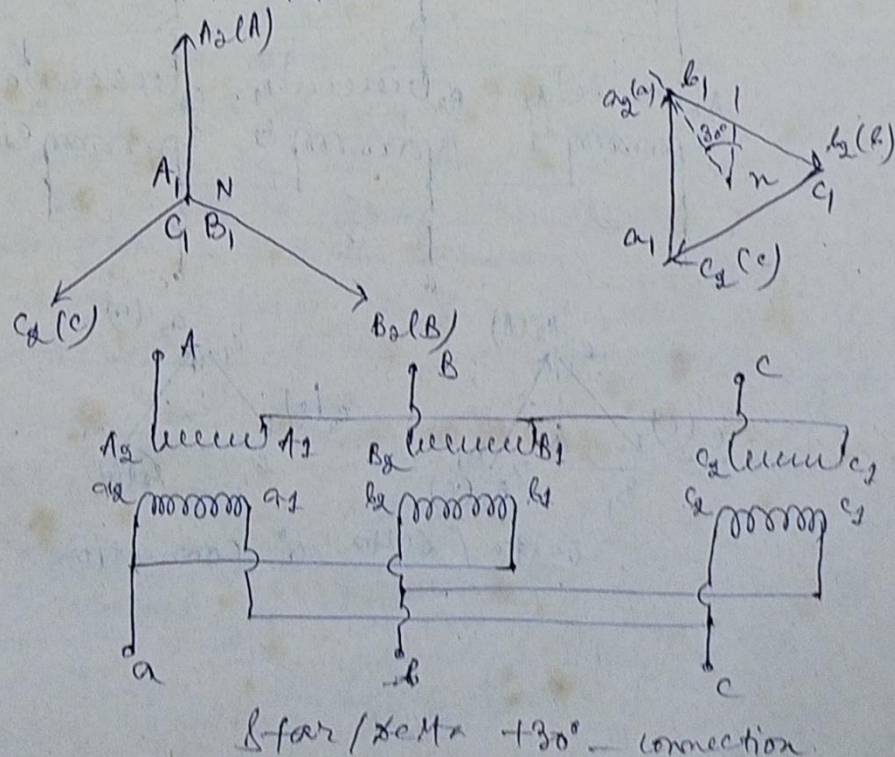 A2(A)
A1 N
C1 B1
C2(C)
B2(B)
a2(a) b1
30°
n
b2(b)
c1
a1
c2(c)
A
B
C
A2 A1
B2 B1
C2 C1
a2 a1
b2 b1
c2 c1
a
b
c
Star/Delta +30° connection